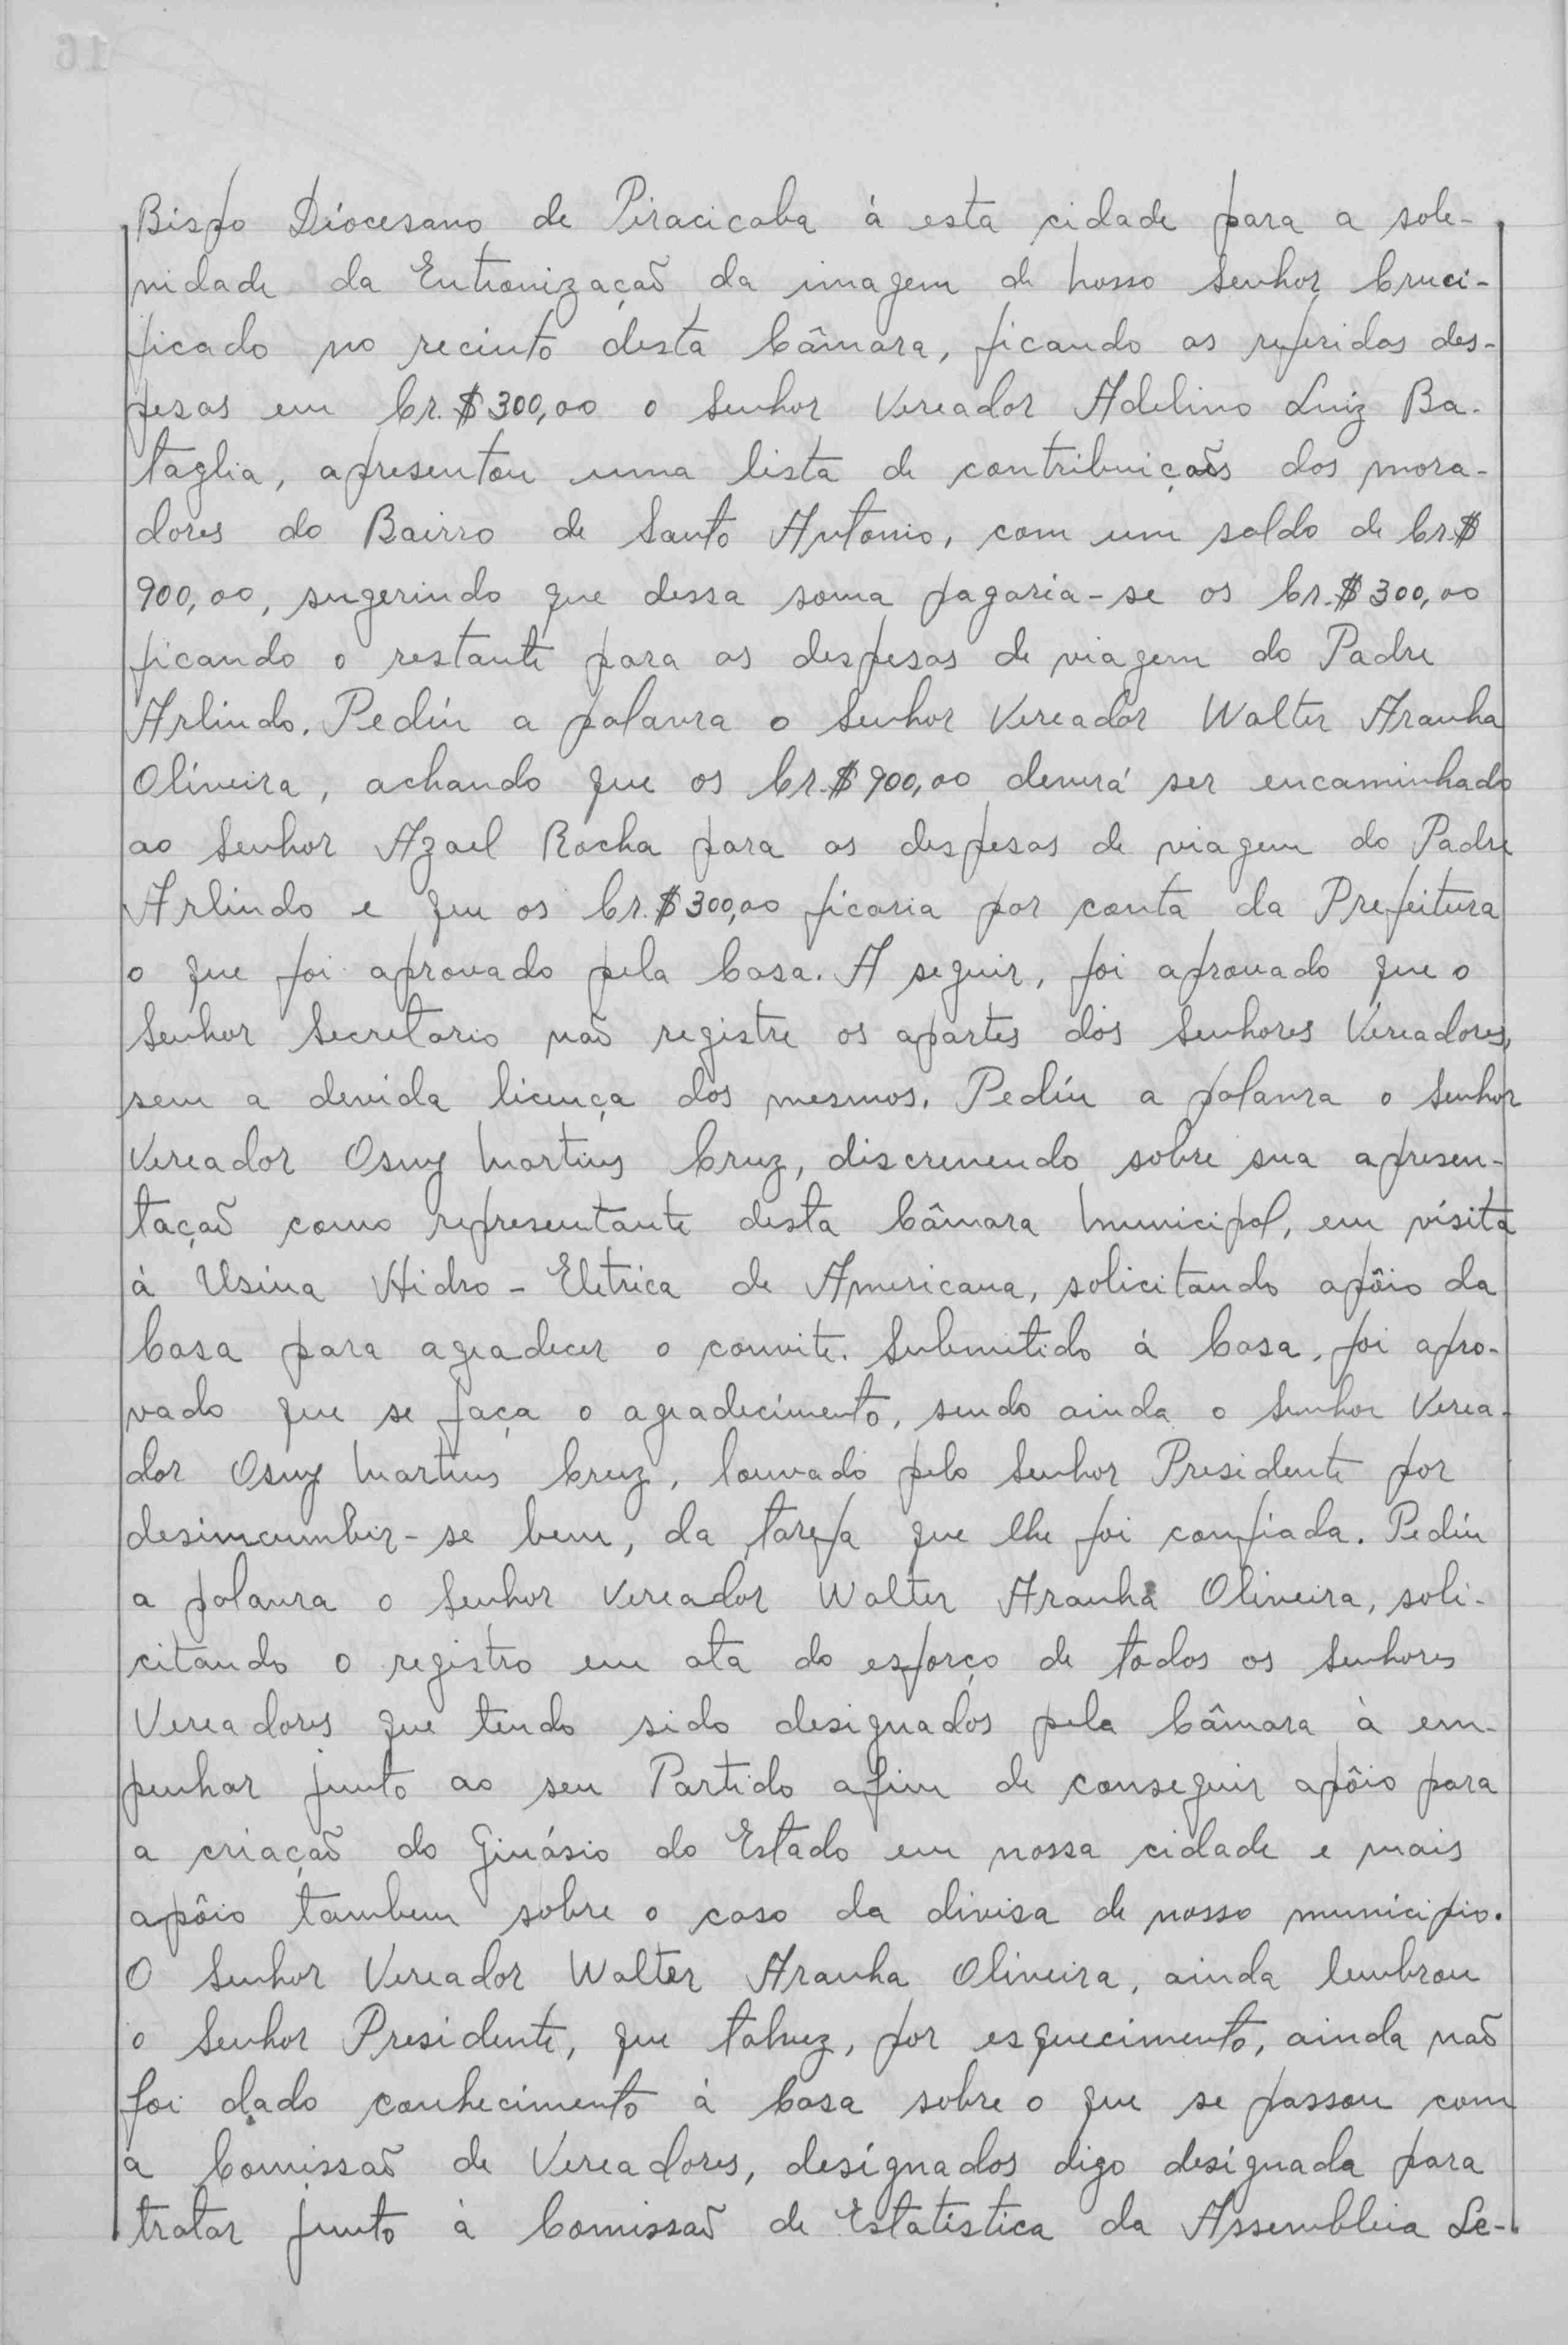 Bispo Diocesano de Piracicaba á esta cidade para a sole-
nidade da Entronização da imagem de Nosso Senhor Cruci-
ficado no recinto desta Câmara, ficando as referidas des-
pesas em Cr.$300,00 o Senhor Vereador Adelino Luiz Ba-
taglia, apresentou uma lista de contribuições dos mora-
dores do Bairro de Santo Antonio, com um saldo de Cr.$
900,00, sugerindo que dessa soma pagaria-se os Cr.$300,00
ficando o restante para as despesas de viagem do Padre
Arlindo. Pediu a palavra o Senhor Vereador Walter Aranha
Oliveira, achando que os Cr.$900,00 deverá ser encaminhado
ao Senhor Azael Rocha para as despesas de viagem do Padre
Arlindo e que os Cr.$300,00 ficaria por conta da Prefeitura
o que foi aprovado pela Casa. A seguir, foi aprovado que o
Senhor Secretario não registre os apartes dos Senhores Vereadores,
sem a devida licença dos mesmos. Pediu a palavra o Senhor
Vereador Osny Martins Cruz, discrevendo sobre sua apresen-
tação como representante desta Câmara Municipal, em visita
á Usina Hidro-Eletrica de Americana, solicitando apôio da
Casa para agradecer o convite. Submetido á Casa, foi apro-
vado que se faça o agradecimento, sendo ainda o Senhor Verea-
dor Osny Martins Cruz, louvado pelo Senhor Presidente por
desimcumbir-se bem, da tarefa que lhe foi confiada. Pediu
a palavra o Senhor Vereador Walter Aranha Oliveira, soli-
citando o registro em ata do esforço de todos os Senhores
Vereadores que tendo sido designados pela Câmara à em-
penhar junto ao seu Partido afim de conseguir apôio para
a criação do Ginásio do Estado em nossa cidade e mais
apôio tambem sobre o caso da divisa de nosso municipio.
O Senhor Vereador Walter Aranha Oliveira, ainda lembrou
o Senhor Presidente, que talvez, por esquecimento, ainda não
foi dado conhecimento á Casa sobre o que se passou com
a Comissão de Vereadores, designados digo designada para
tratar junto à Comissão de Estatistica da Assembleia Le-